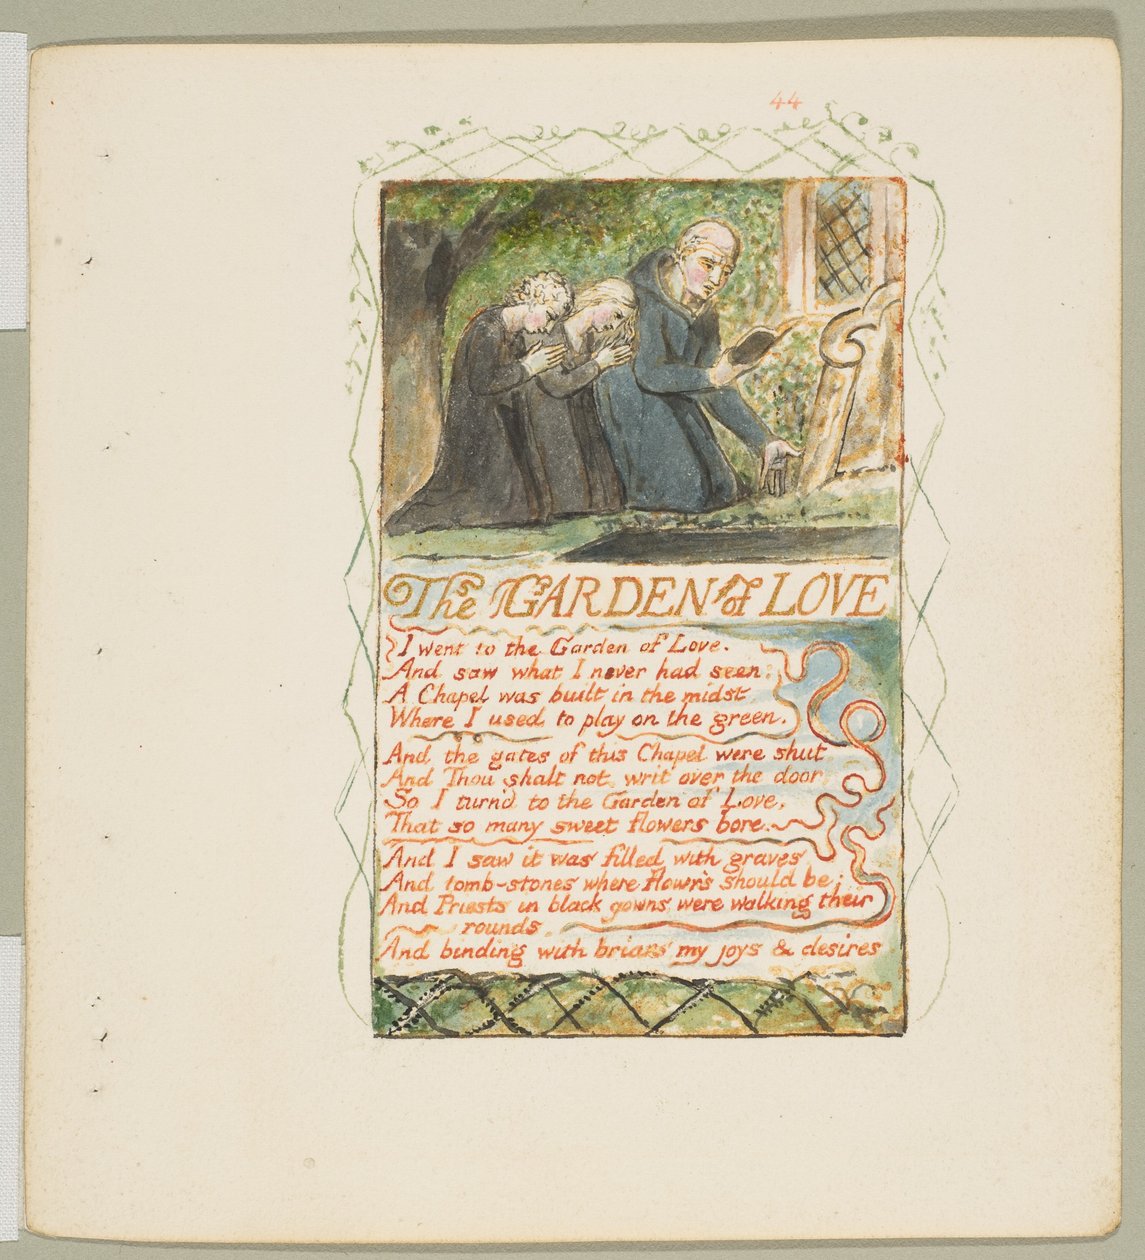 44
The GARDEN of LOVE
I went to the Garden of Love.
And saw what I never had seen:
A Chapel was built in the midst,
Where I used to play on the green.
And the gates of this Chapel were shut
And Thou shalt not, writ over the door;
So I turn'd to the Garden of Love,
That so many sweet flowers bore.
And I saw it was filled with graves,
And tomb-stones where flowers should be:
And Priests in black gowns, were walking their
rounds,
And binding with briars, my joys & desires